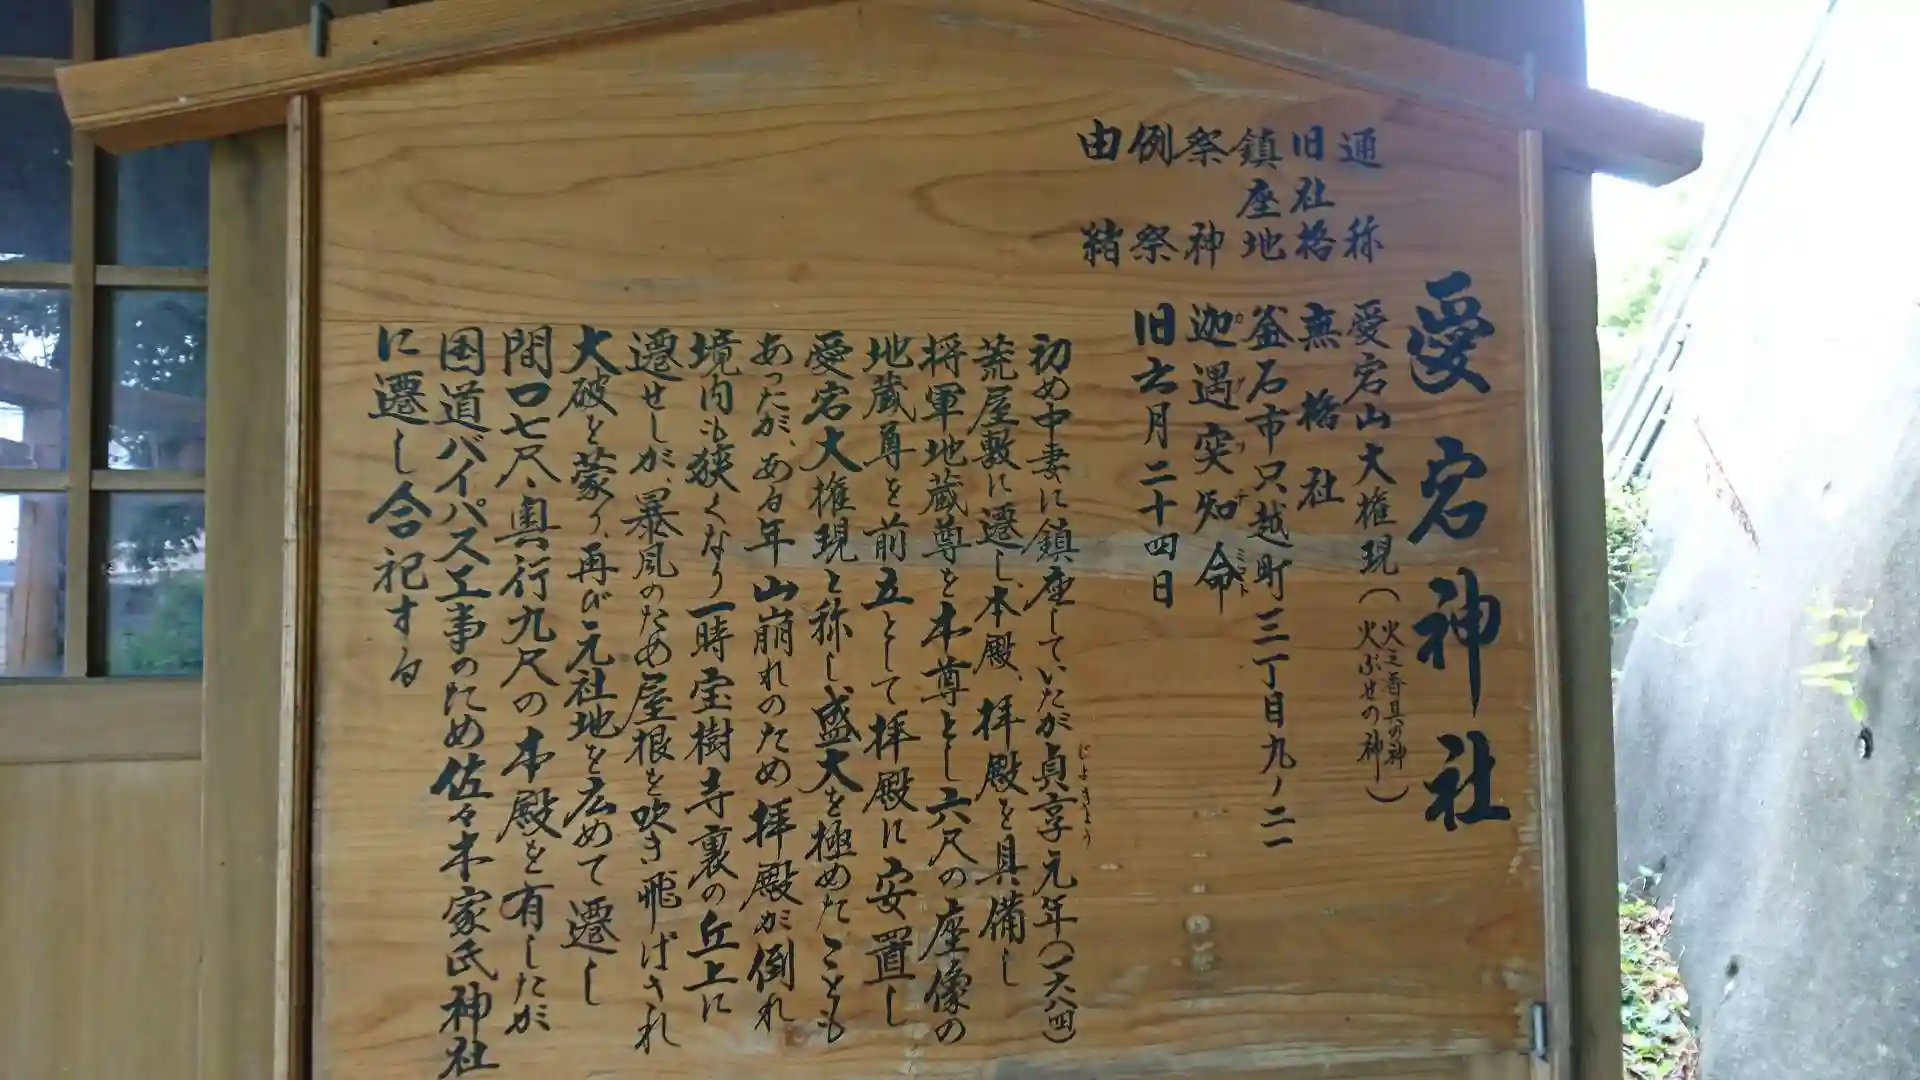 愛宕神社
通称 愛宕山大権現(火之香具の神 火ぶせの神)
旧社格 無格社
鎮座地 釜石市只越町三丁目九ノ二一
祭神 迦遇突知命
旧六月二十四日 例祭
由緒
初め中妻に鎮座していたが貞享元年(一六八四)
じょきょう
荒屋敷に遷し、本殿、拝殿を具備し
将軍地蔵尊を本尊とし六尺の座像の
地蔵尊を前立として拝殿に安置し
愛宕大権現と称し盛大を極めたことも
あったが、ある年山崩れのため拝殿が倒れ
境内も狭くなり一時宝樹寺裏の丘上に
遷せしが、暴風のため屋根を吹き飛ばされ
大破を蒙り、再び元社地を広めて遷し
間口七尺、奥行九尺の本殿を有したが
国道バイパス工事のため佐々木家氏神社
に遷し合祀する